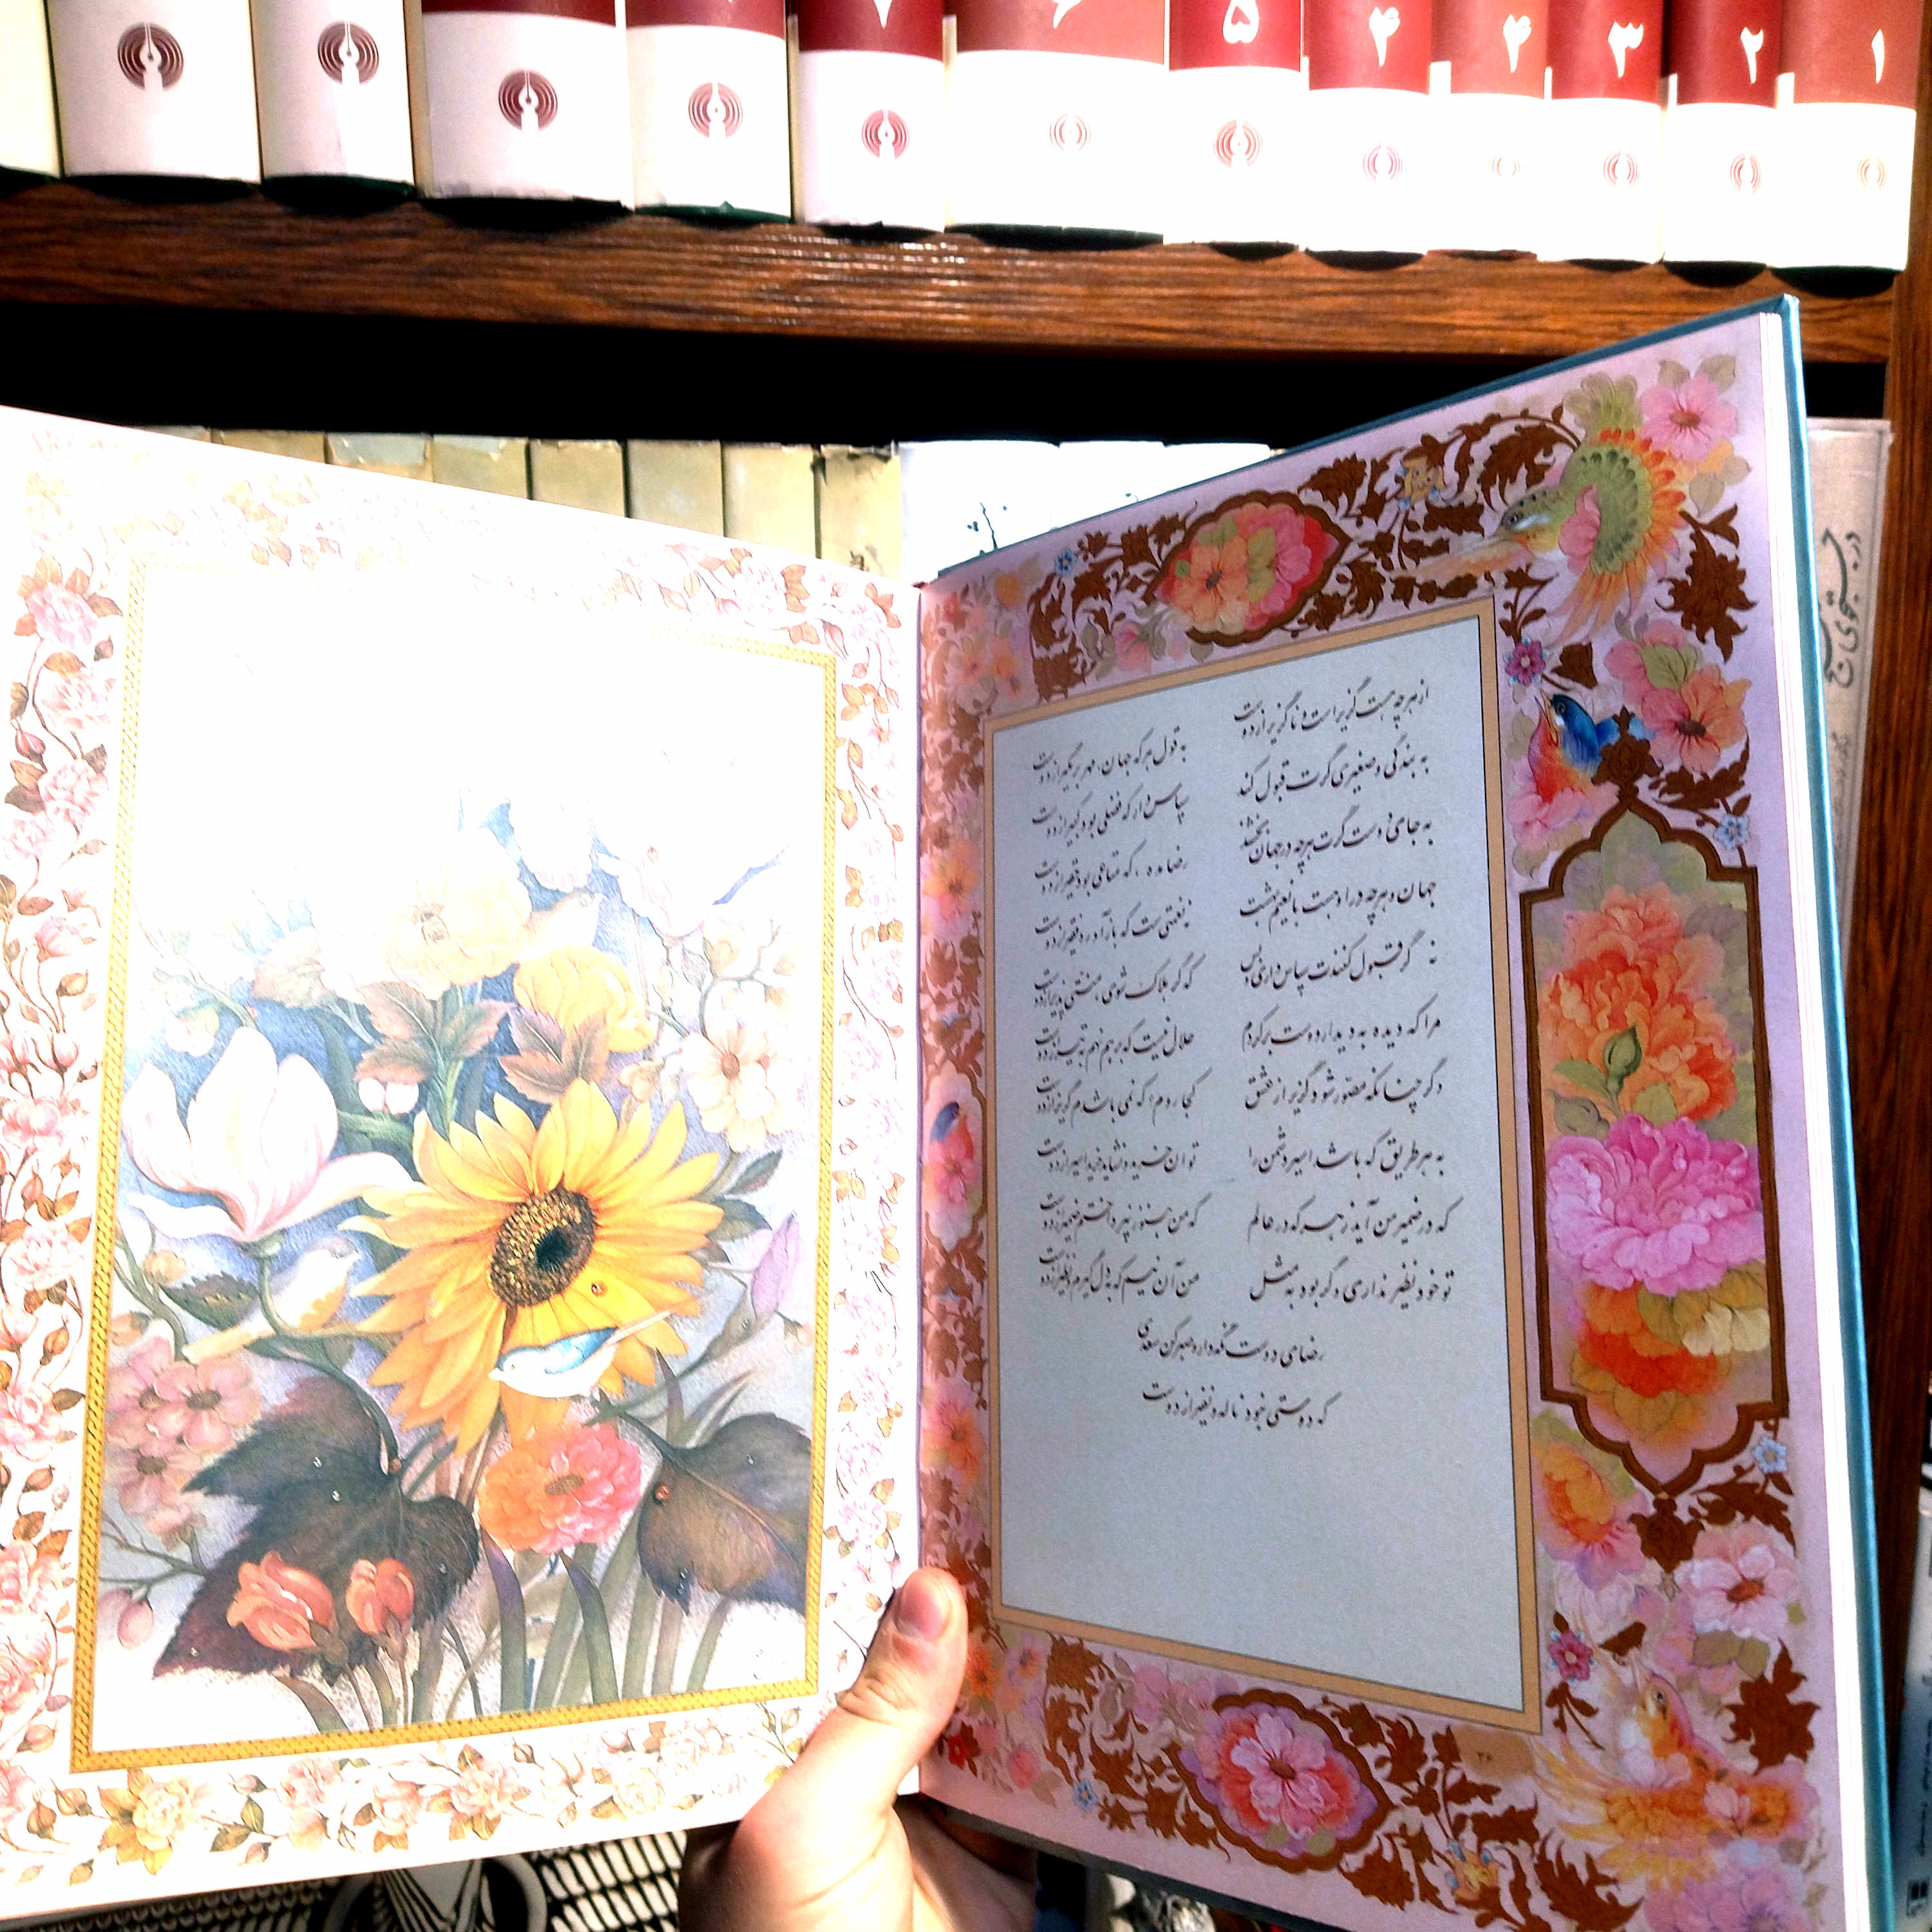 ۱
۲
۳
۴
۴
۵
۶
۷
از هرچه هست گزیر است و ناگزیر از دوست
به قول هر که جهان، مهر برمگیر از دوست
به بندگی و صغیری گرت قبول کند
سپاس دار که فضلی بود کبیر از دوست
به جای دوست گرت هرچه در جهان بخشند
رضا مده، که متاعی بود حقیر از دوست
جهان و هرچه در او هست با نعیم بهشت
نه نعمتی ست که باز آورد فقیر از دوست
نه گر قبول کنندت سپاس داری و بس
که گر هلاک شوی، منتی پذیر از دوست
مرا که دیده به دیدار دوست برکردم
حلال نیست که بر هم نهم به تیر از دوست
وگر چنانکه مصوّر شود گزیر از عشق
کجا روم؟ که نمی باشدم گزیر از دوست
به هر طریق که باشد اسیر دشمن را
توان خرید و نشاید خرید اسیر از دوست
که در ضمیر من آید ز هر که در عالم
که من هنوز نپرداختم ضمیر از دوست
تو خود نظیر نداری وگر بود به مثل
من آن نیم که بدل گیرم و نظیر از دوست
رضای دوست نگه دار و صبر کن سعدی
که دوستی نبود ناله و نفیر از دوست
در جستجوی